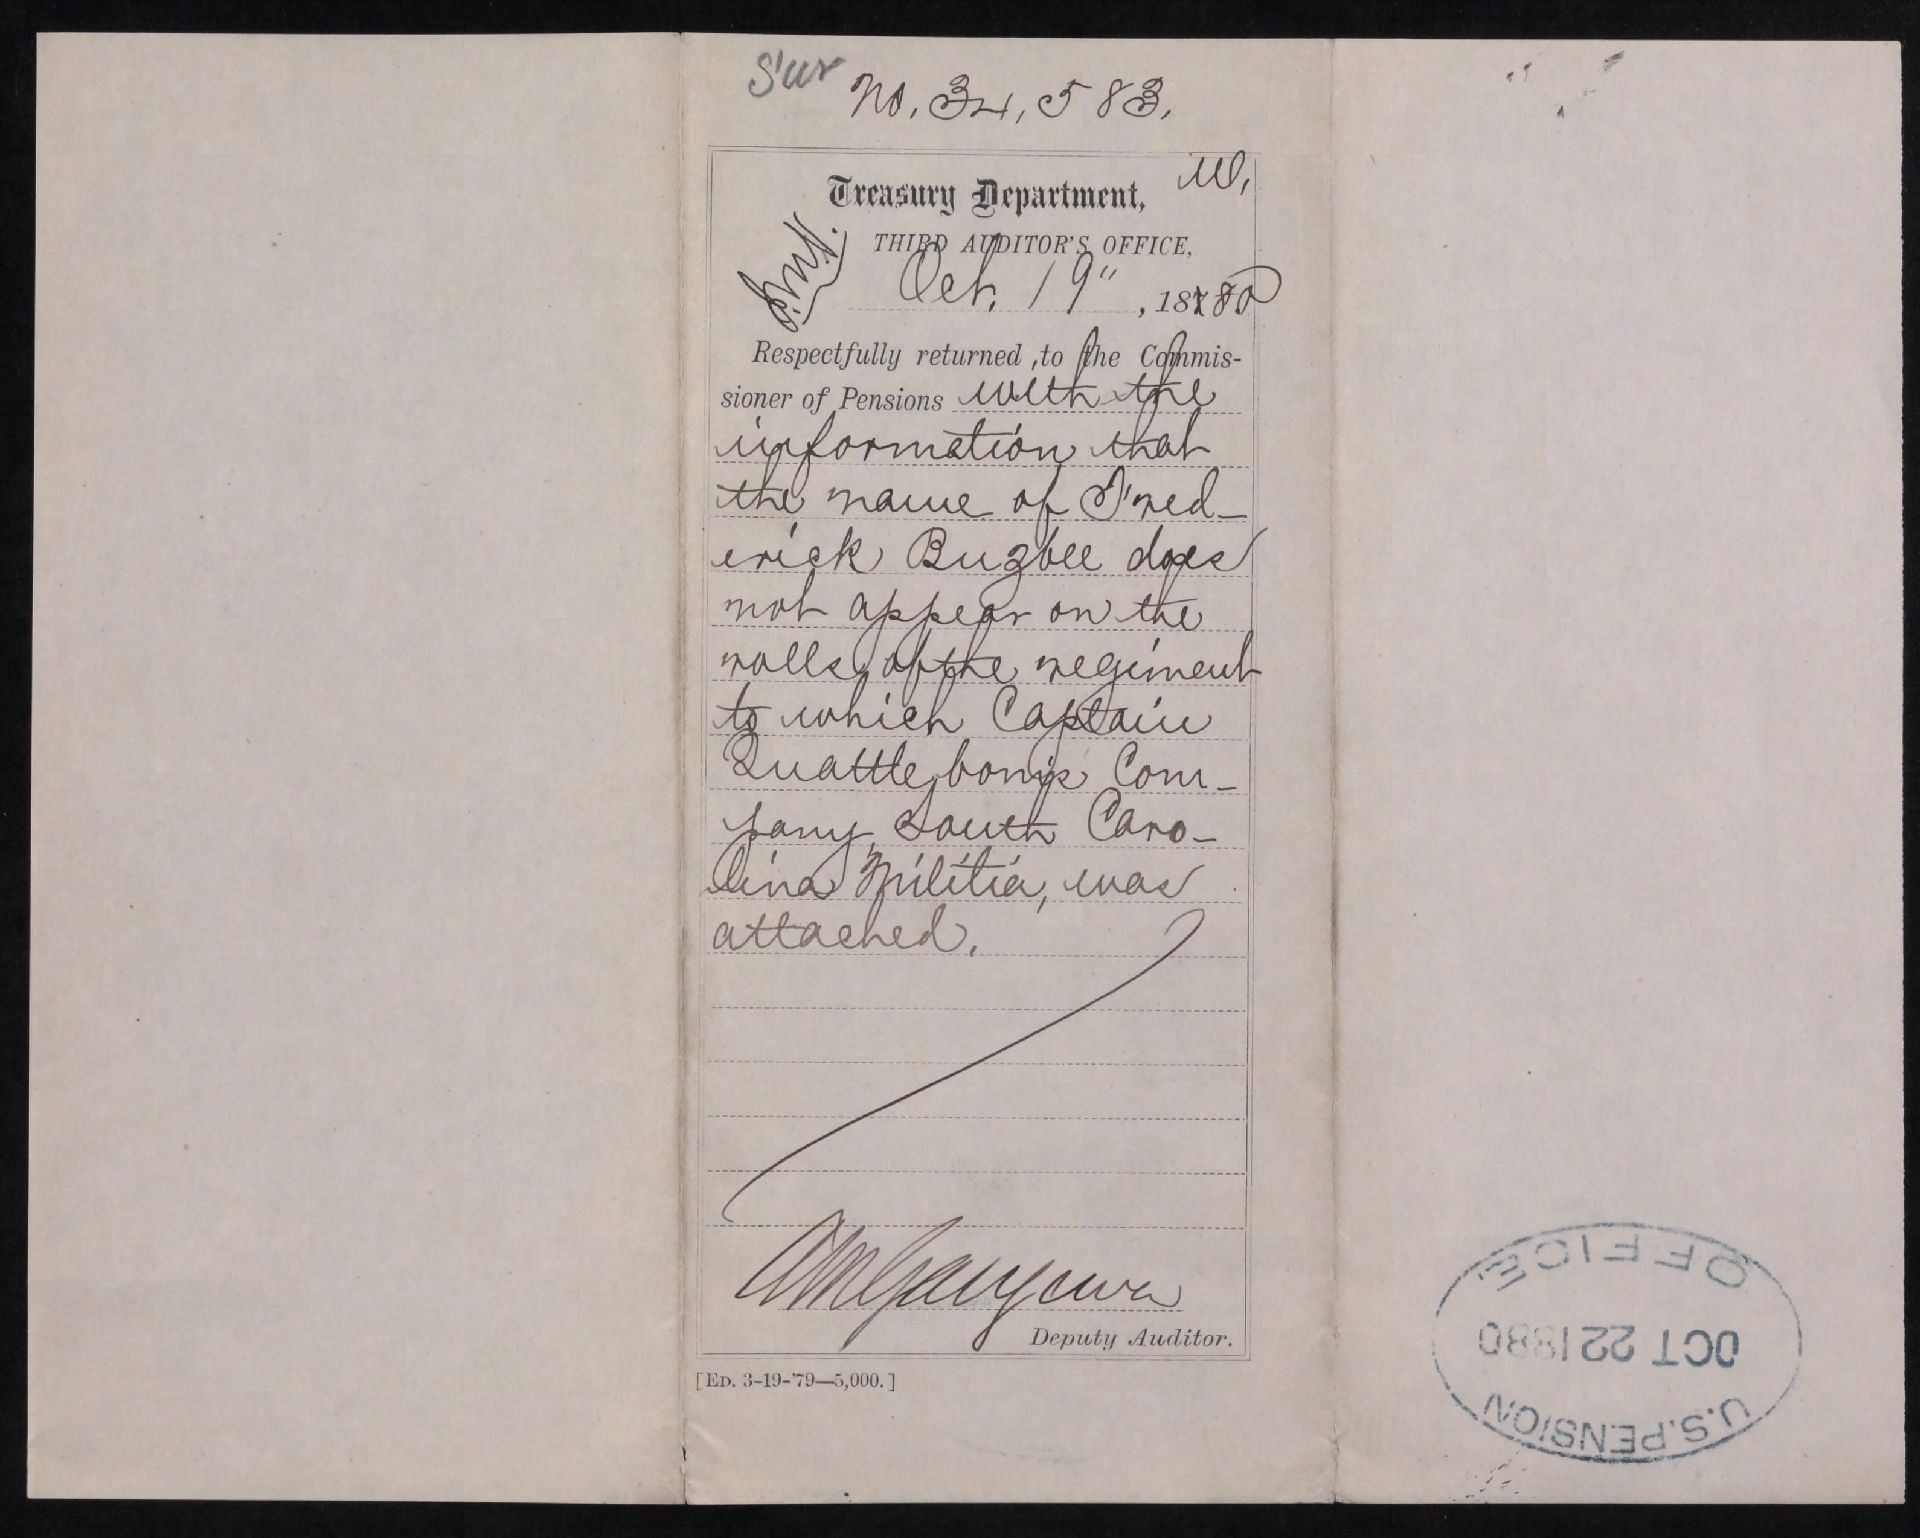 Sur
No. 34,583.
W,
Treasury Department,
THIRD AUDITOR'S OFFICE,
Oct. 19", 1880
Respectfully returned to the Commis-
sioner of Pensions with the
information that
the name of Fred-
erick Buzbee does
not appear on the
rolls of the regiment
to which Captain
Quattlebom's Com-
pany, South Caro-
lina Militia, was
attached.
Deputy Auditor.
[ED. 3-19-'79—5,000.]
U.S. PENSION
OCT 22 1880
OFFICE